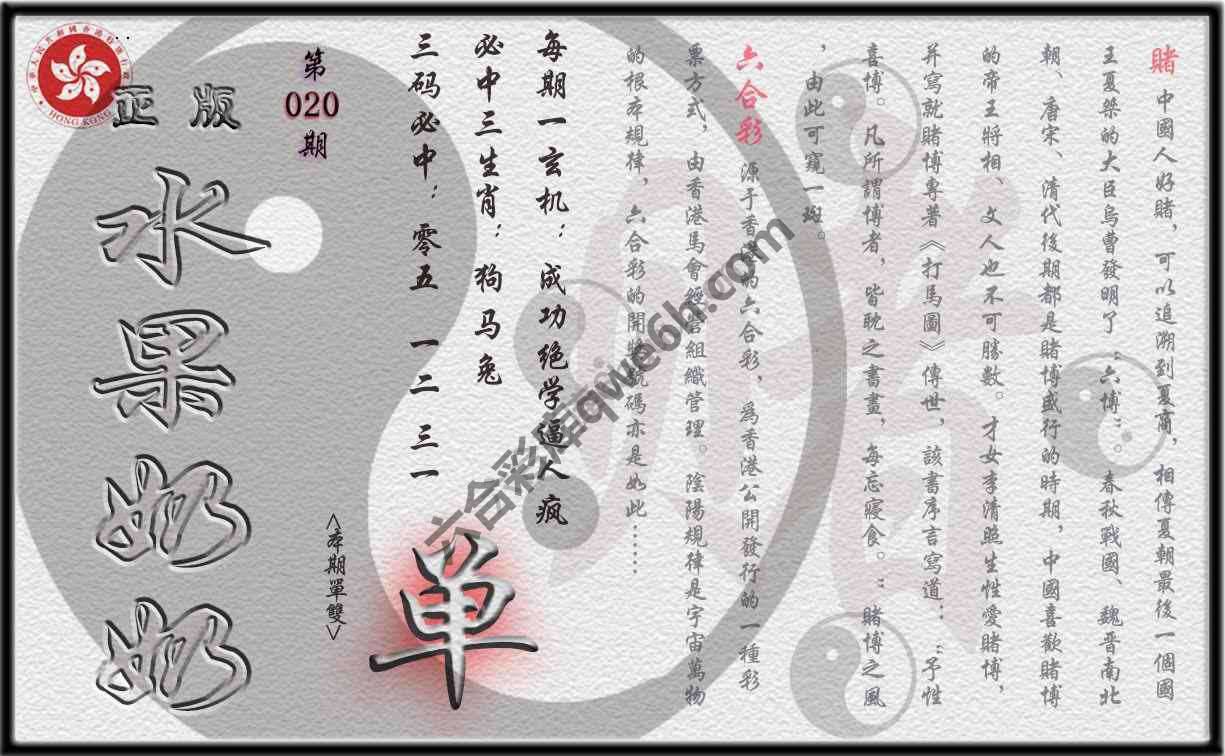 賭中國人好賭，可以追溯到夏商，相傳夏朝最後一個國
王夏桀的大臣烏曹發明了“六博”。春秋戰國、魏晋南北
朝、唐宋、清代後期都是賭博盛行的時期，中國喜歡賭博
的帝王將相、文人也不可勝數。才女李清照生性愛賭博，
并寫就賭博專著《打馬圖》傳世，該書序言寫道：“予性
喜博。凡所謂博者，皆耽之書畫，每忘寢食。”賭博之風
，由此可窺一斑。
六合彩 源于香港的六合彩，爲香港公開發行的一種彩
票方式，由香港馬會經營組織管理。陰陽規律是宇宙萬物
的根本規律，六合彩的開獎號碼亦是如此……
每期一玄机：成功绝学逼人疯
必中三生肖：狗马兔
三码必中：零五 一二 三一
单
第
020
期
<本期單雙>
正版
水果奶奶
HONG KONG
六合彩庫qwe6h.com